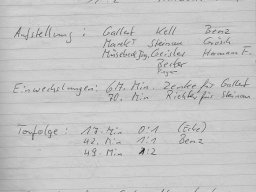 Aufstellung : Gallert Kell Benz
Markt Sternau Grösch
Geisler Hermann F.
Becker
Einwechslungen: 67. Min. Zemke für Gallert
70. Min Richter für Sternau
Torfolge : 17. Min 0:1 (Ecke)
42. Min 1:1 Benz
49. Min 1:2